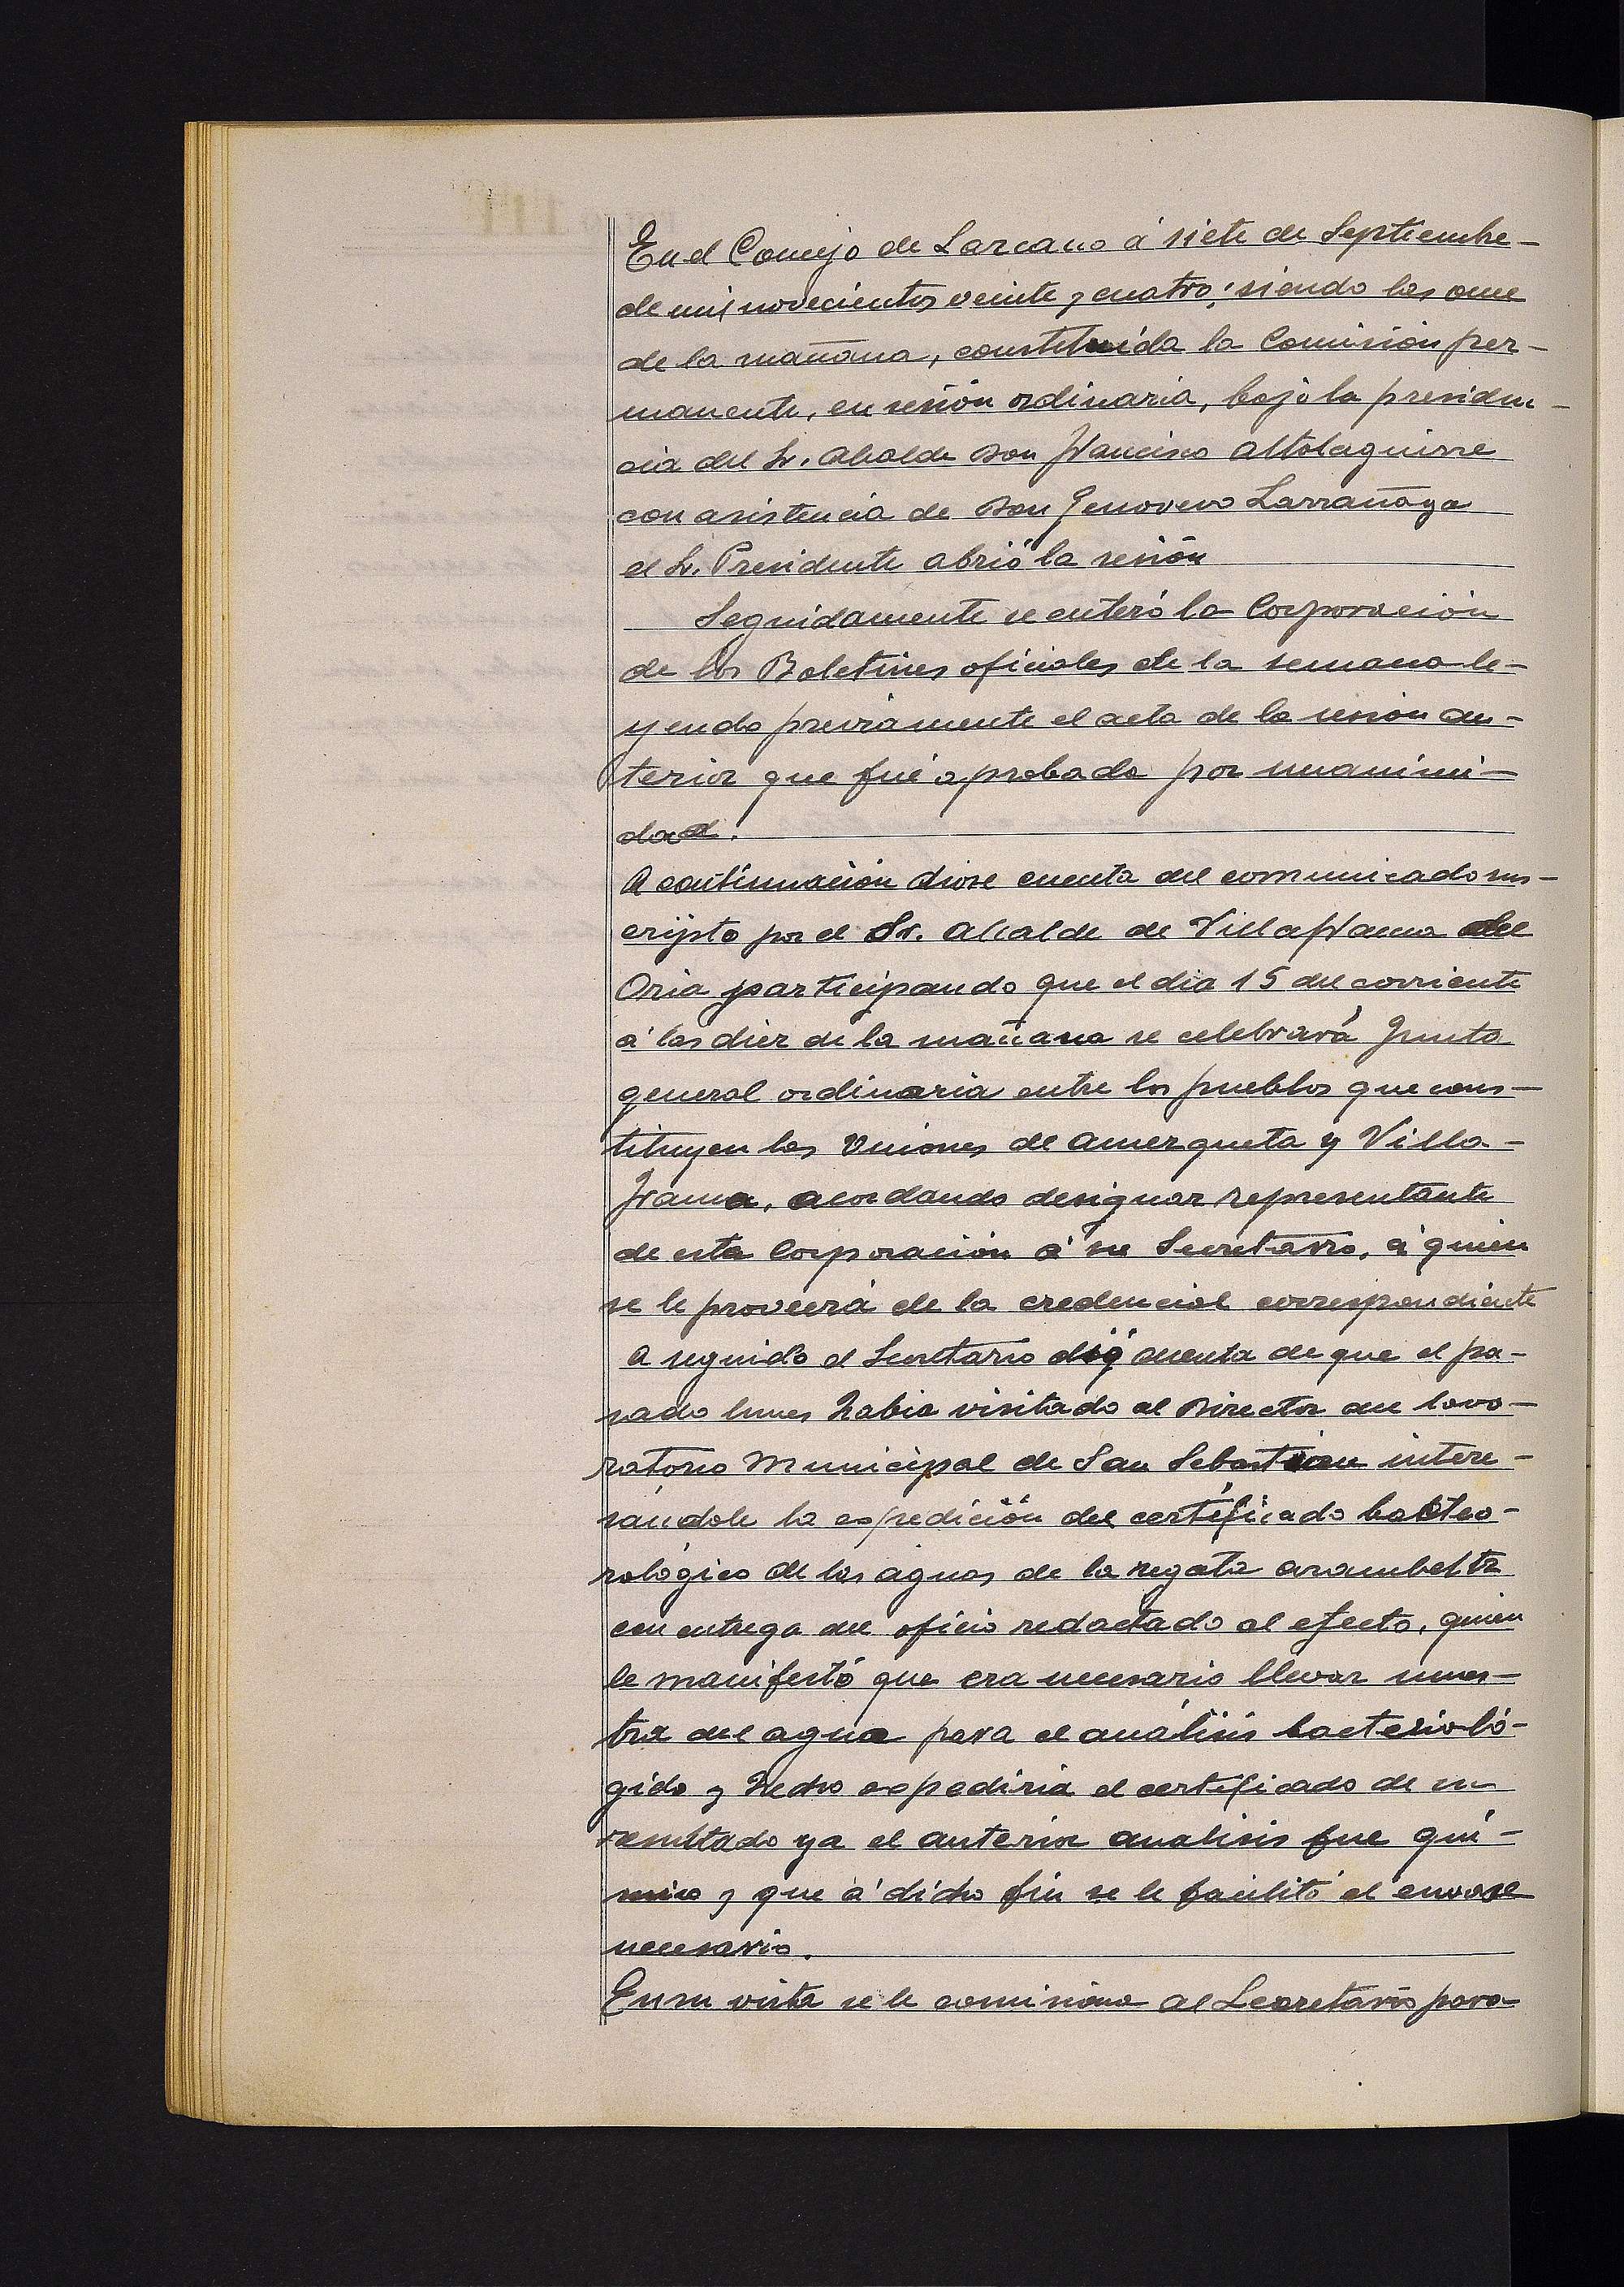 En el Concejo de Lazcano á siete de Septiembre-
de mil novecientos veinte y cuatro; siendo las once
de la mañana, constituída la Comisión per-
manente, en sesión ordinaria, bajo la presiden-
cia del Sr. Alcalde Don Francisco Altolaguirre
con asistencia de Don Genovevo Larrañaga
el Sr. Presidente abrió la sesión
Seguidamente se enteró la Corporación
de los Boletines oficiales de la semana le-
yendo previamente el acta de la sesión an-
terior que fué aprobada por unanimi-
dad.
A continuación diose cuenta del comunicado sus-
cripto por el Sr. Alcalde de Villafranca del
Oria participando que el dia 15 del corriente
á las diez de la mañana se celebrará Junta
general ordinaria entre los pueblos que cons-
tituyen las Uniones de Amezqueta y Villa-
franca, acordando designar representante
de esta Corporación á su Secretario, á quien
se le proveerá de la credencial correspondiente
A seguido el Secretario dió cuenta de que el pa-
sado lunes habia visitado al Director del lavo-
ratorio Municipal de San Sebastian intere-
sándole la expedición del certificado bacteo-
rológico de las aguas de la regata arambeltz
con entrega del oficio redactado al efecto, quien
le manifestó que era necesario llevar mues-
tra del agua para el análisis bacterioló-
gido y hecho expediria el certificado de su
resultado ya el anterior analisis fue quí-
mico y que á dicho fin se le facilitó el envase
necesario.
En su vista se le comisiona al Secretario para